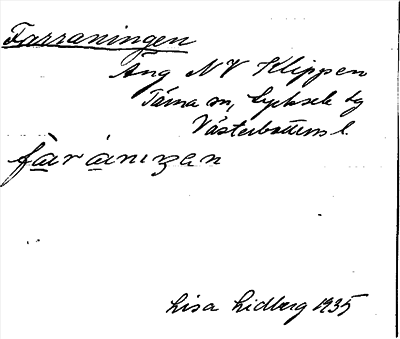 Farraningen
Äng NV Klippen
Tärna sn, Lycksele lg
Västerbottens l.
fàràniŋen
Lisa Lidberg 1935